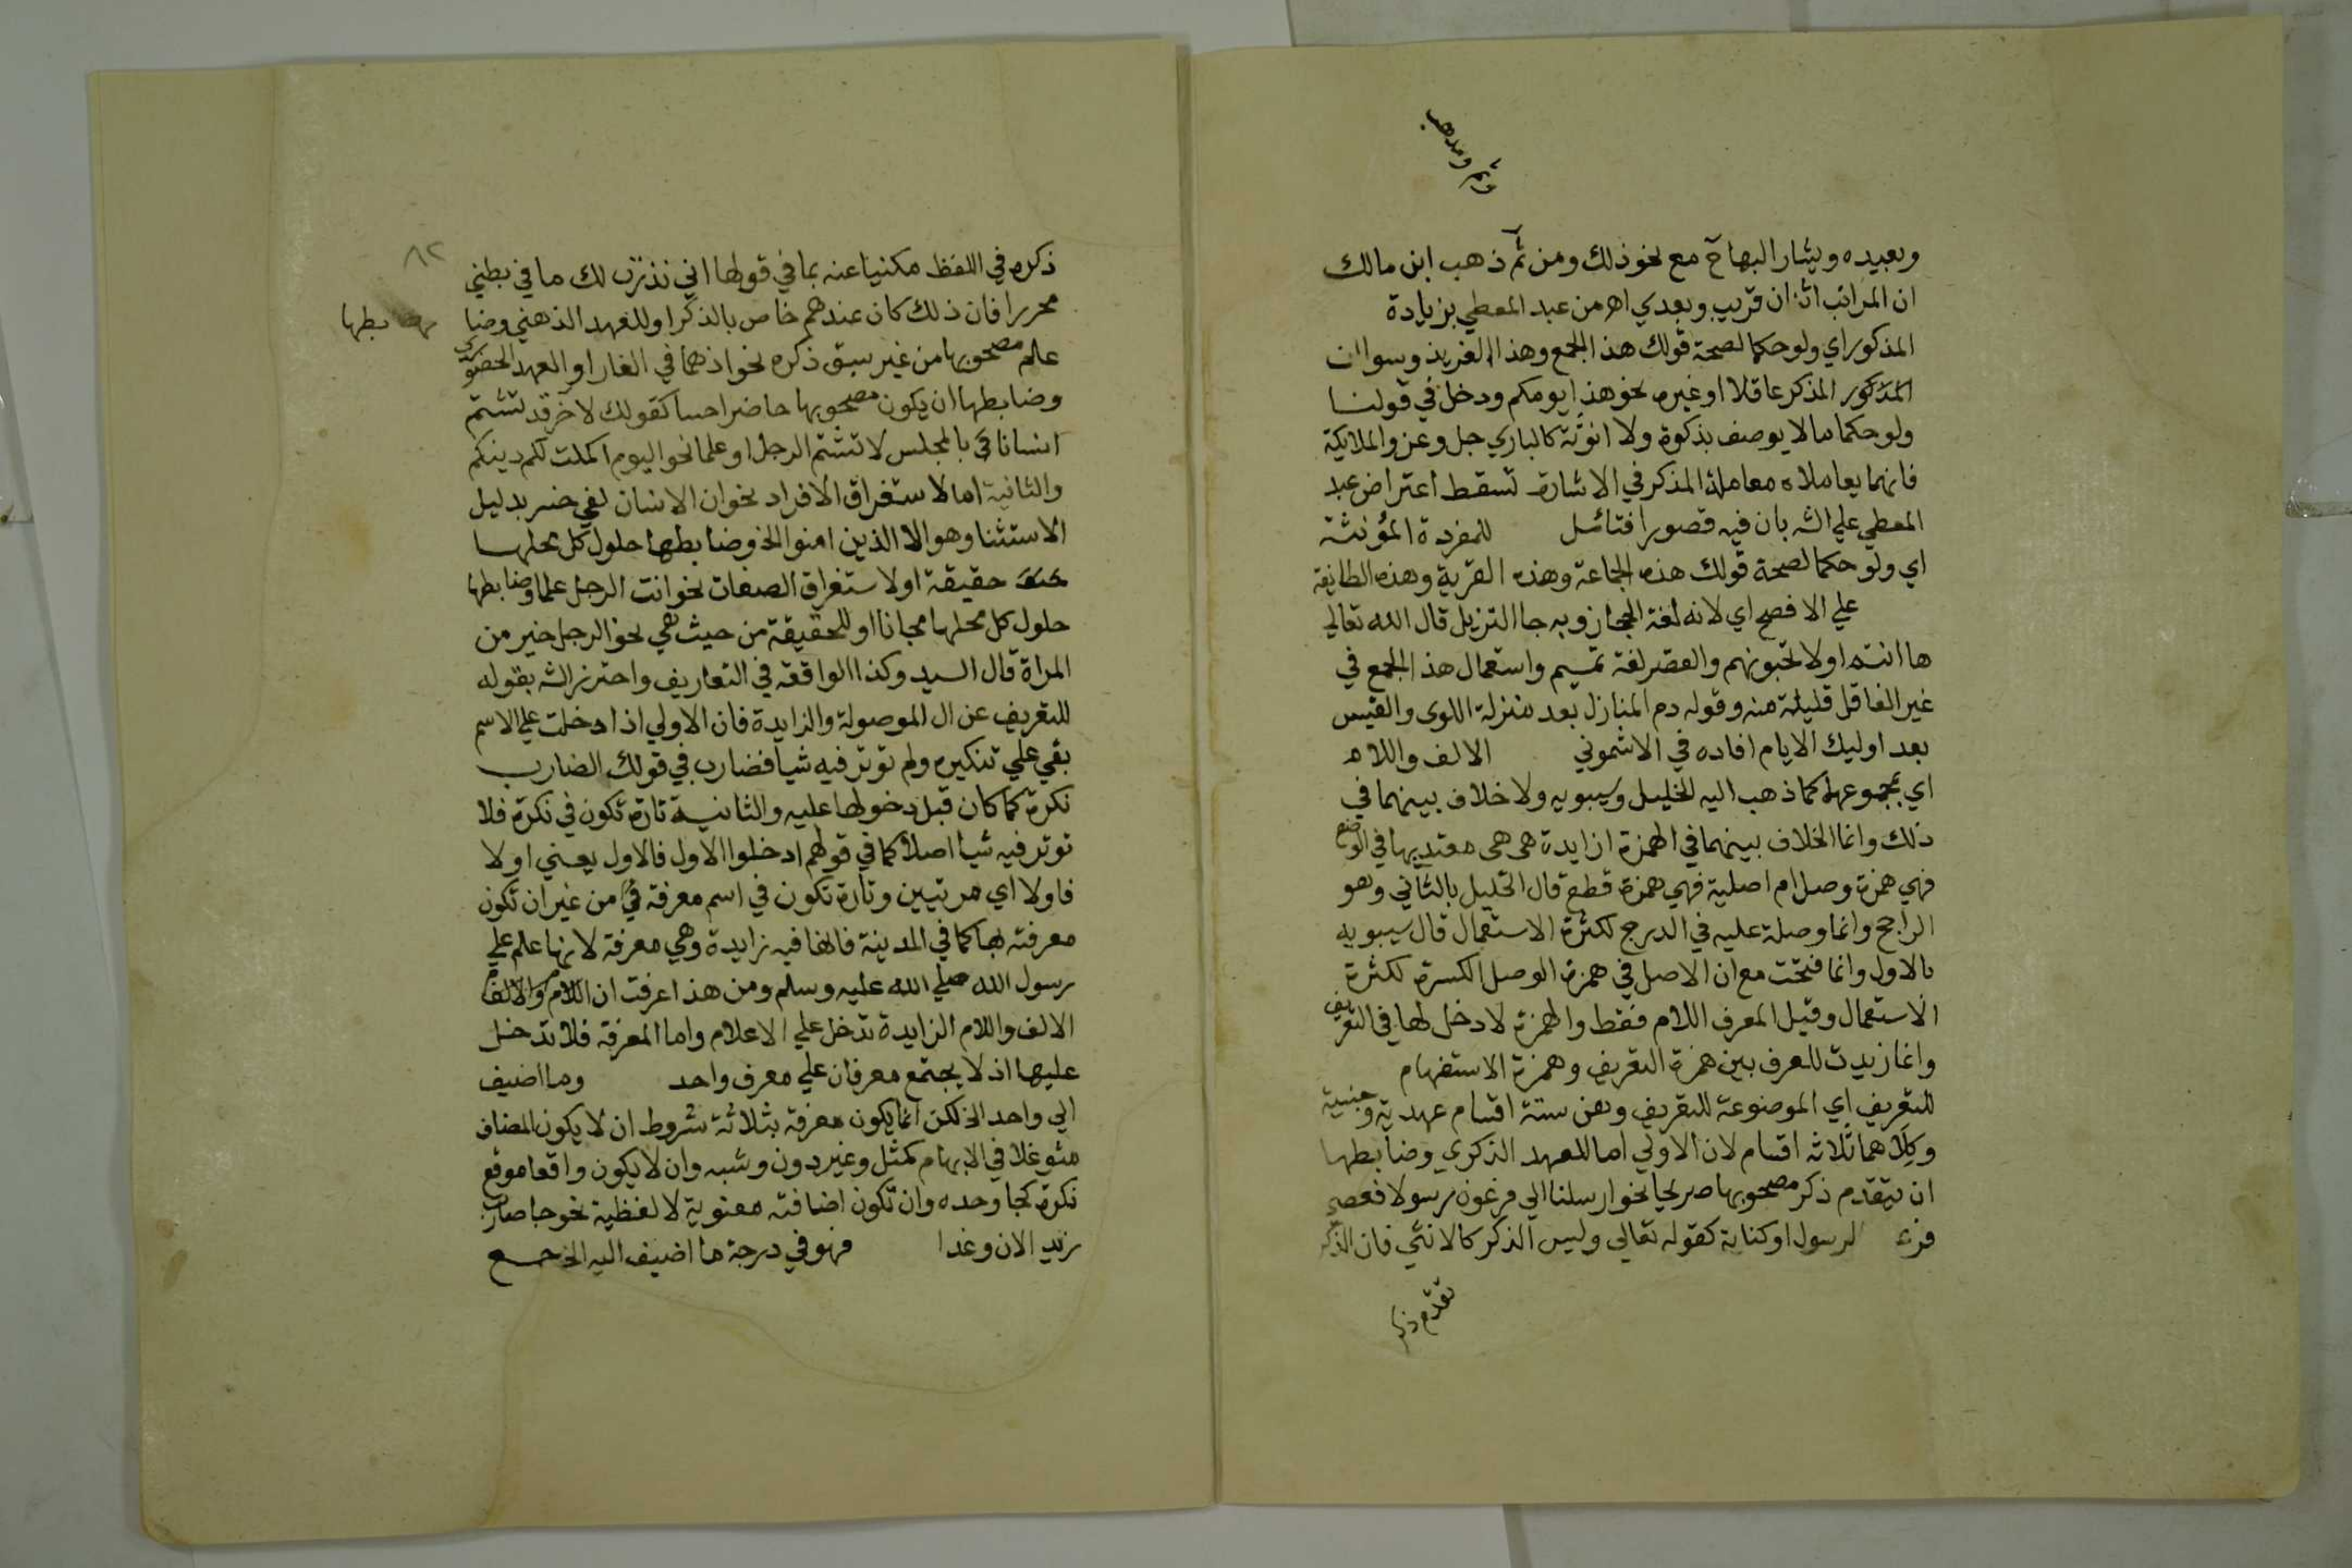 وثم ومذهب
وبعيده ويشار البهاح مع نحو ذلك ومن ثم ذهب ابن مالك
ان المراتب اثنان قريب وبعدي اهر من عبد المعطي بزيادة
المذكور اي ولو حكما لصحة قولك هذا الجمع وهذا الفريق وسوا ان
المذكور المذكر عاقلا او غيره نحو هذا يومكم ودخل في قولنا
ولو حكما ما لا يوصف بذكورة ولا انوثة كالباري جل وعز والملايكة
فانهما يعاملاه معاملة المذكر في الاشارة تسقط اعتراض عبد
المعطي علي الشه بان فيه قصورا فتائمل للمفردة المؤنثة
اي ولو حكما لصحة قولك هذه الجماعة وهذه القرية وهذه الطايفة
علي الافصح اي لانه لغة الحجاز وبه جا التنزيل قال الله تعالي
ها انتم اولا تحبونهم والقصر لغة تميم واستعمال هذا الجمع في
غير العاقل قليلة منه وقوله دم المنازل بعد منزلة اللوى والعيس
بعد اوليك الايام افاده في الاشموني الالف واللام
اي بمجموعهما كما ذهب اليه الخليل وسيبويه ولا خلاف بينهما في
ذلك وانما الخلاف بينهما في الهمزة ازايدة هى هى معتد بها في الوضع
فهي همزة وصل ام اصلية فهي همزة قطع قال الخليل بالثاني وهو
الراجح وانما وصلة عليه في الدرج لكثرة الاستعمال قال سيبويه
بالاول وانما فتحت مع ان الاصل في همزة الوصل الكسرة لكثرة
الاستعمال وقيل المعرف اللام فقط والهمزة لا دخل لها في التعريف
وانما زيدت للعرف بين همزة التعريف وهمزة الاستفهام
للتعريف اي الموضوعة للتعريف وهن ستة اقسام عهدية وجنسية
وكلاهما ثلاثه اقسام لان الاولي اما للعهد الذكري وضابطها
ان يتقدم ذكر مصحوبها صريحا نحو ارسلنا الي فرعون رسولا فعصي
فرء الرسول او كناية كقوله تعالى وليس الذكر كالانثي فان الذكر
تقدم ذكر
٨٢
ذكره في اللفظ مكنيا عنه بما في قولها اني نذرت لك ما في بطني
محررا فان ذلك كان عندهم خاص بالذكر او للعهد الذهني وضا بطها
علم مصحوبها من غير سبق ذكره نحو اذ هما في الغار او العهد الحضوري
وضابطها ان يكون مصحوبها حاضرا حسا كقولك لاخر قد تشتم
انسانا في بالمجلس لا تشتم الرجل او علما نحو اليوم اكملت لكم دينكم
والثانية اما لاستغراق الافراد نحو ان الانسان لفي خسر بدليل
الاستثنا وهو الا الذين امنوا الخ وضابطها حلول كل محلها
حقيقة او لاستغراق الصفات نحو انت الرجل علما وضابطها
حلول كل محلها مجانا او للحقيقة من حيث هي نحو الرجل خير من
المراة قال السيد وكذا الواقعة في التعاريف واحترز الشه بقوله
للتعريف عن ال الموصولة والزايدة فان الاولي اذا دخلت علي الاسم
بقي علي تنكيره ولم توثر فيه شيا فضارب في قولك الضارب
نكرة كما كان قبل دخولها عليه والثانية تارة تكون في نكرة فلا
توثر فيه شيا اصلا كما في قولهم ادخلوا الاول فالاول يعني اولا
فاولا اي مرتبين وتارة تكون في اسم معرفة من غير ان تكون
معرفته بها كما في المدينة فانها فيه زايدة وهي معرفة لانها علم علي
رسول الله صلي الله عليه وسلم ومن هذا عرفت ان اللام والالف
الالف واللام الزايدة تدخل علي الاعلام واما المعرفة فلا تدخل
عليها اذ لا يجتمع معرفان علي معرف واحد وما اضيف
الي واحد الخ لكن انما يكون معرفة بثلاثة شروط ان لا يكون المضاف
متوغلا في الابهام كمثل وغير دون وشبه وان لا يكون واقعا موقع
نكرة كجا وحده وان تكون اضافته معنوية لا لفظية نحو جا ضارب
زيد الان وغدا فهو في درجة ما اضيف اليه الخ جمع